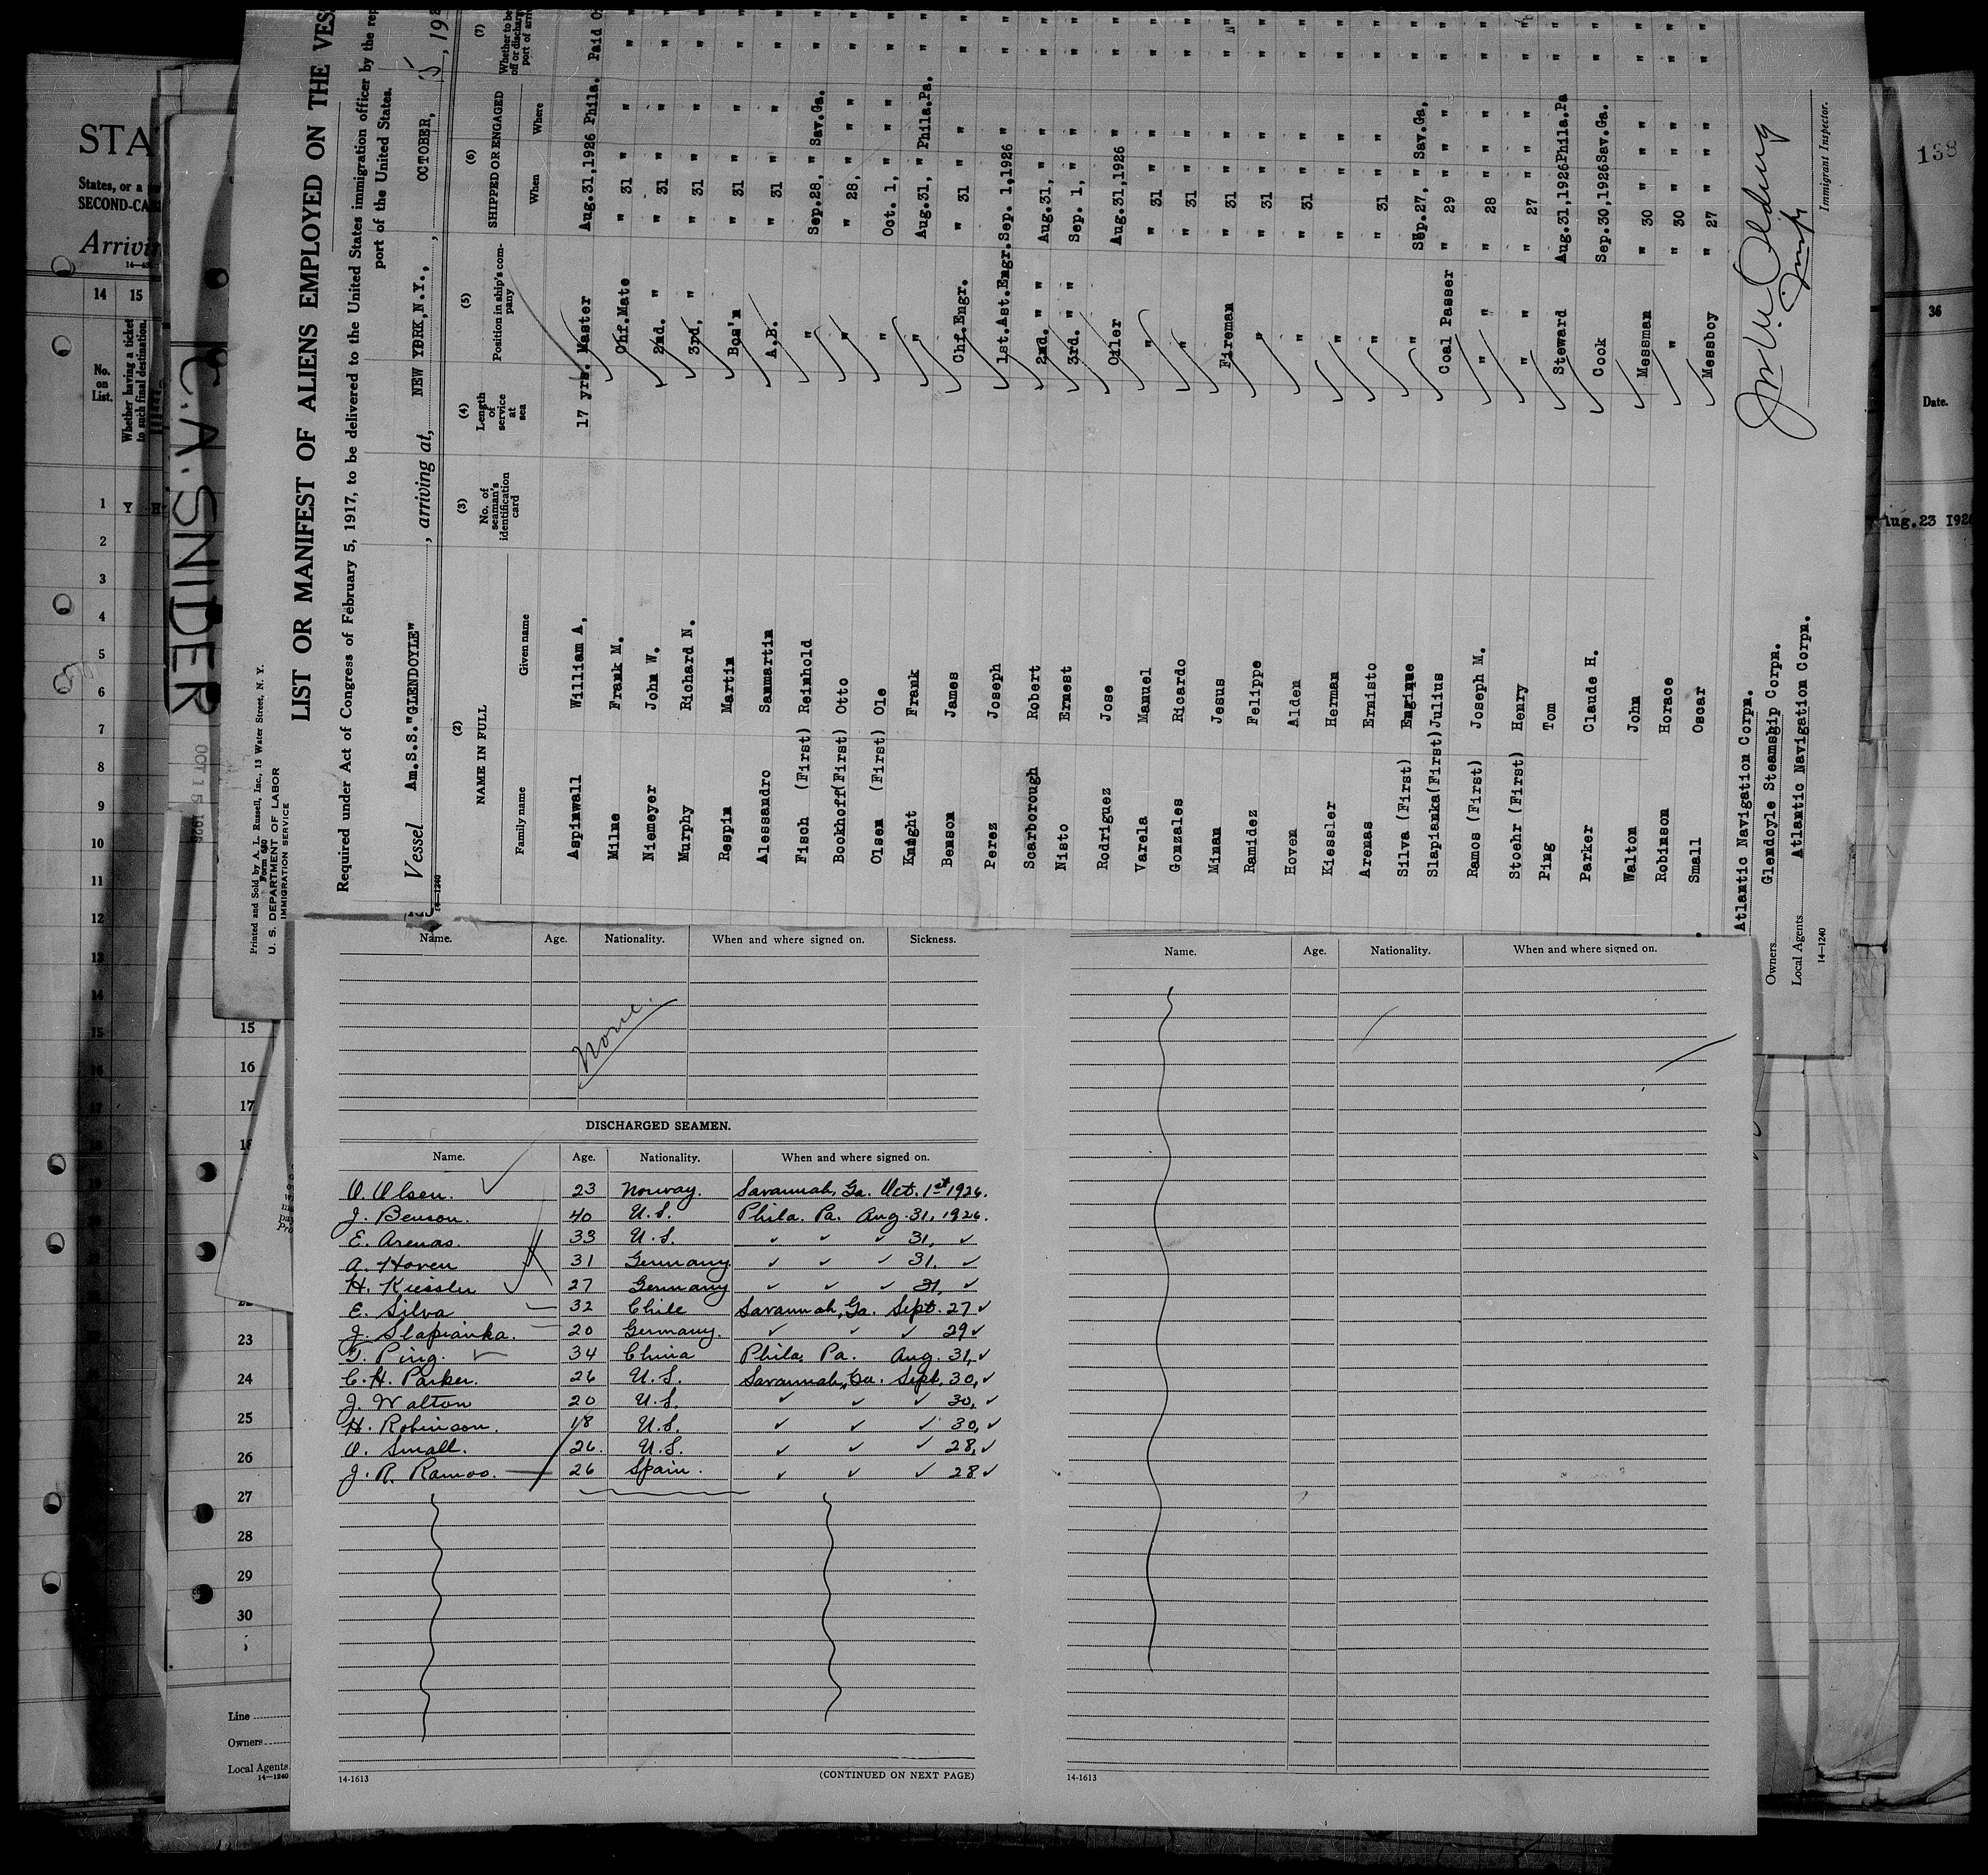 STA
States, or a
SECOND-CA
Arrivin
14 15
No. on List.
Whether having a ticket to such final destination.
1 Y H
2
3
4
5
6
7
8
9
10
11
12
13
14
15
16
17
C. A. SNIDER
OCT 15 1926
138
36
Date.
Aug. 23 192
Printed and Sold by A. L. Russell, Inc., 13 Water Street, N. Y.
Form 680
U. S. DEPARTMENT OF LABOR
IMMIGRATION SERVICE
LIST OR MANIFEST OF ALIENS EMPLOYED ON THE VES
Required under Act of Congress of February 5, 1917, to be delivered to the United States immigration officer by the rep
port of the United States.
Vessel Am.S.S."GLENDOYLE", arriving at, NEW YORK,N.Y., OCTOBER, 5, 19
14—1240
(2) (3) (4) (5) (6) (7)
NAME IN FULL
Family name Given name
No. of seaman's identification card
Length of service at sea
Position in ship's company
SHIPPED OR ENGAGED
When Where
Whether to be
off or discharg
port of arri
Aspinwall William A, 17 yrs. Master Aug.31,1926 Phila. Paid O
Milne Frank M. Chf.Mate " 31 " " "
Niemeyer John W. 2nd. " " 31 " " "
Murphy Richard N. 3rd, " " 31 " " "
Respin Martin Bos'n " 31 " " "
Alessandro Sanmartin A.B. " 31 " " "
Fisch (First) Reinhold " Sep.28, " Sav.Ga. "
Bookhoff(First) Otto " " 28, " " "
Olsen (First) Ole " Oct. 1, " " "
Knight Frank " Aug.31, " Phila.Pa. "
Benson James Chf.Engr. " 31 " " "
Perez Joseph 1st.Ast.Engr. Sep. 1,1926 " "
Scarborough Robert 2nd. " " Aug.31, " " "
Nisto Ernest 3rd. " " Sep. 1, " " "
Rodriguez Jose Oiler Aug.31,1926 " "
Varela Manuel " " 31 " " "
Gonzales Ricardo " " 31 " " "
Minan Jesus Fireman " 31 " " "
Ramidez Felippe " " 31 " " "
Hoven Alden " " 31 " " "
Kiessler Herman " " " " "
Arenas Ernisto " " 31 " " "
Silva (First) Enrique " Sep.27, " Sav.Ga, "
Slapianka(First)Julius Coal Passer " 29 " " "
Ramos (First) Joseph M. " " " 28 " " "
Stoehr (First) Henry " " 27 " " "
Ping Tom Steward Aug.31,1926Phila.Pa "
Parker Claude H. Cook Sep.30,1926Sav.Ga. "
Walton John Messman " 30 " " "
Robinson Horace " " 30 " " "
Small Oscar Messboy " 27 " " "
Immigrant Inspector.
Atlantic Navigation Corpn.
Owners Glendoyle Steamship Corpn.
Local Agents Atlantic Navigation Corpn.
14—1240
Name. Age. Nationality. When and where signed on. Sickness.
None.
DISCHARGED SEAMEN.
Name. Age. Nationality. When and where signed on.
O. Olsen. 23 Norway. Savannah, Ga. Oct. 1st 1926.
J. Benson. 40 U.S. Phila. Pa. Aug. 31, 1926.
E. Arenas. 33 U.S. ✓ ✓ ✓ 31, ✓
A. Hoven 31 Germany ✓ ✓ ✓ 31. ✓
H. Kiessler 27 Germany ✓ ✓ ✓ 31, ✓
E. Silva 32 Chile Savannah, Ga. Sept. 27 ✓
J. Slapianka. 20 Germany. ✓ ✓ ✓ 29 ✓
T. Ping. 34 China Phila. Pa. Aug. 31, ✓
C. H. Parker. 26 U.S. Savannah, Ga. Sept. 30, ✓
J. Walton 20 U.S. ✓ ✓ ✓ 30, ✓
H. Robinson. 18 U.S. ✓ ✓ ✓ 30, ✓
O. Small. 26. U.S. ✓ ✓ ✓ 28, ✓
J. R. Ramos. 26 Spain. ✓ ✓ ✓ 28 ✓
14-1613
(CONTINUED ON NEXT PAGE)
Name. Age. Nationality. When and where signed on.
14-1613
15
16
17
23
24
25
26
27
28
29
30
Line
Owners
Local Agents
14—1240